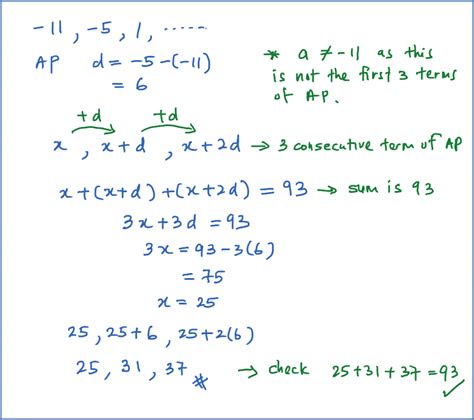 -11, -5, 1, ......
AP d = -5-(-11)
= 6
* a ≠ -11 as this
is not the first 3 terms
of AP.
+d +d
x, x+d, x+2d → 3 consecutive term of AP
x+(x+d)+(x+2d) = 93 → sum is 93
3x+3d = 93
3x = 93-3(6)
= 75
x = 25
25, 25+6, 25+2(6)
25, 31, 37 # → check 25+31+37=93 ✓